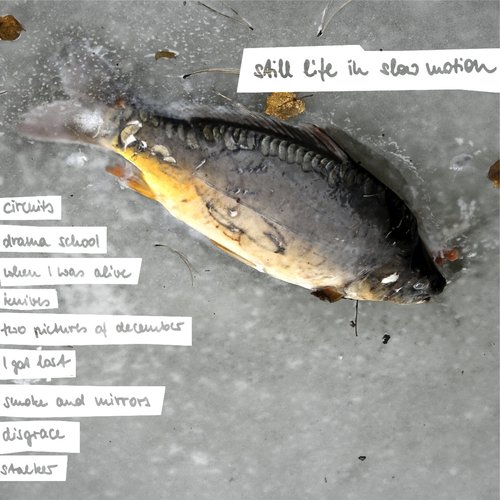 still life in slow motion
circuits
drama school
when I was alive
knives
two pictures of december
I got lost
smoke and mirrors
disgrace
stalker